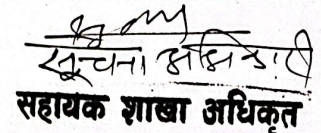 सूचना अधिकारी
सहायक शाखा अधिकृत